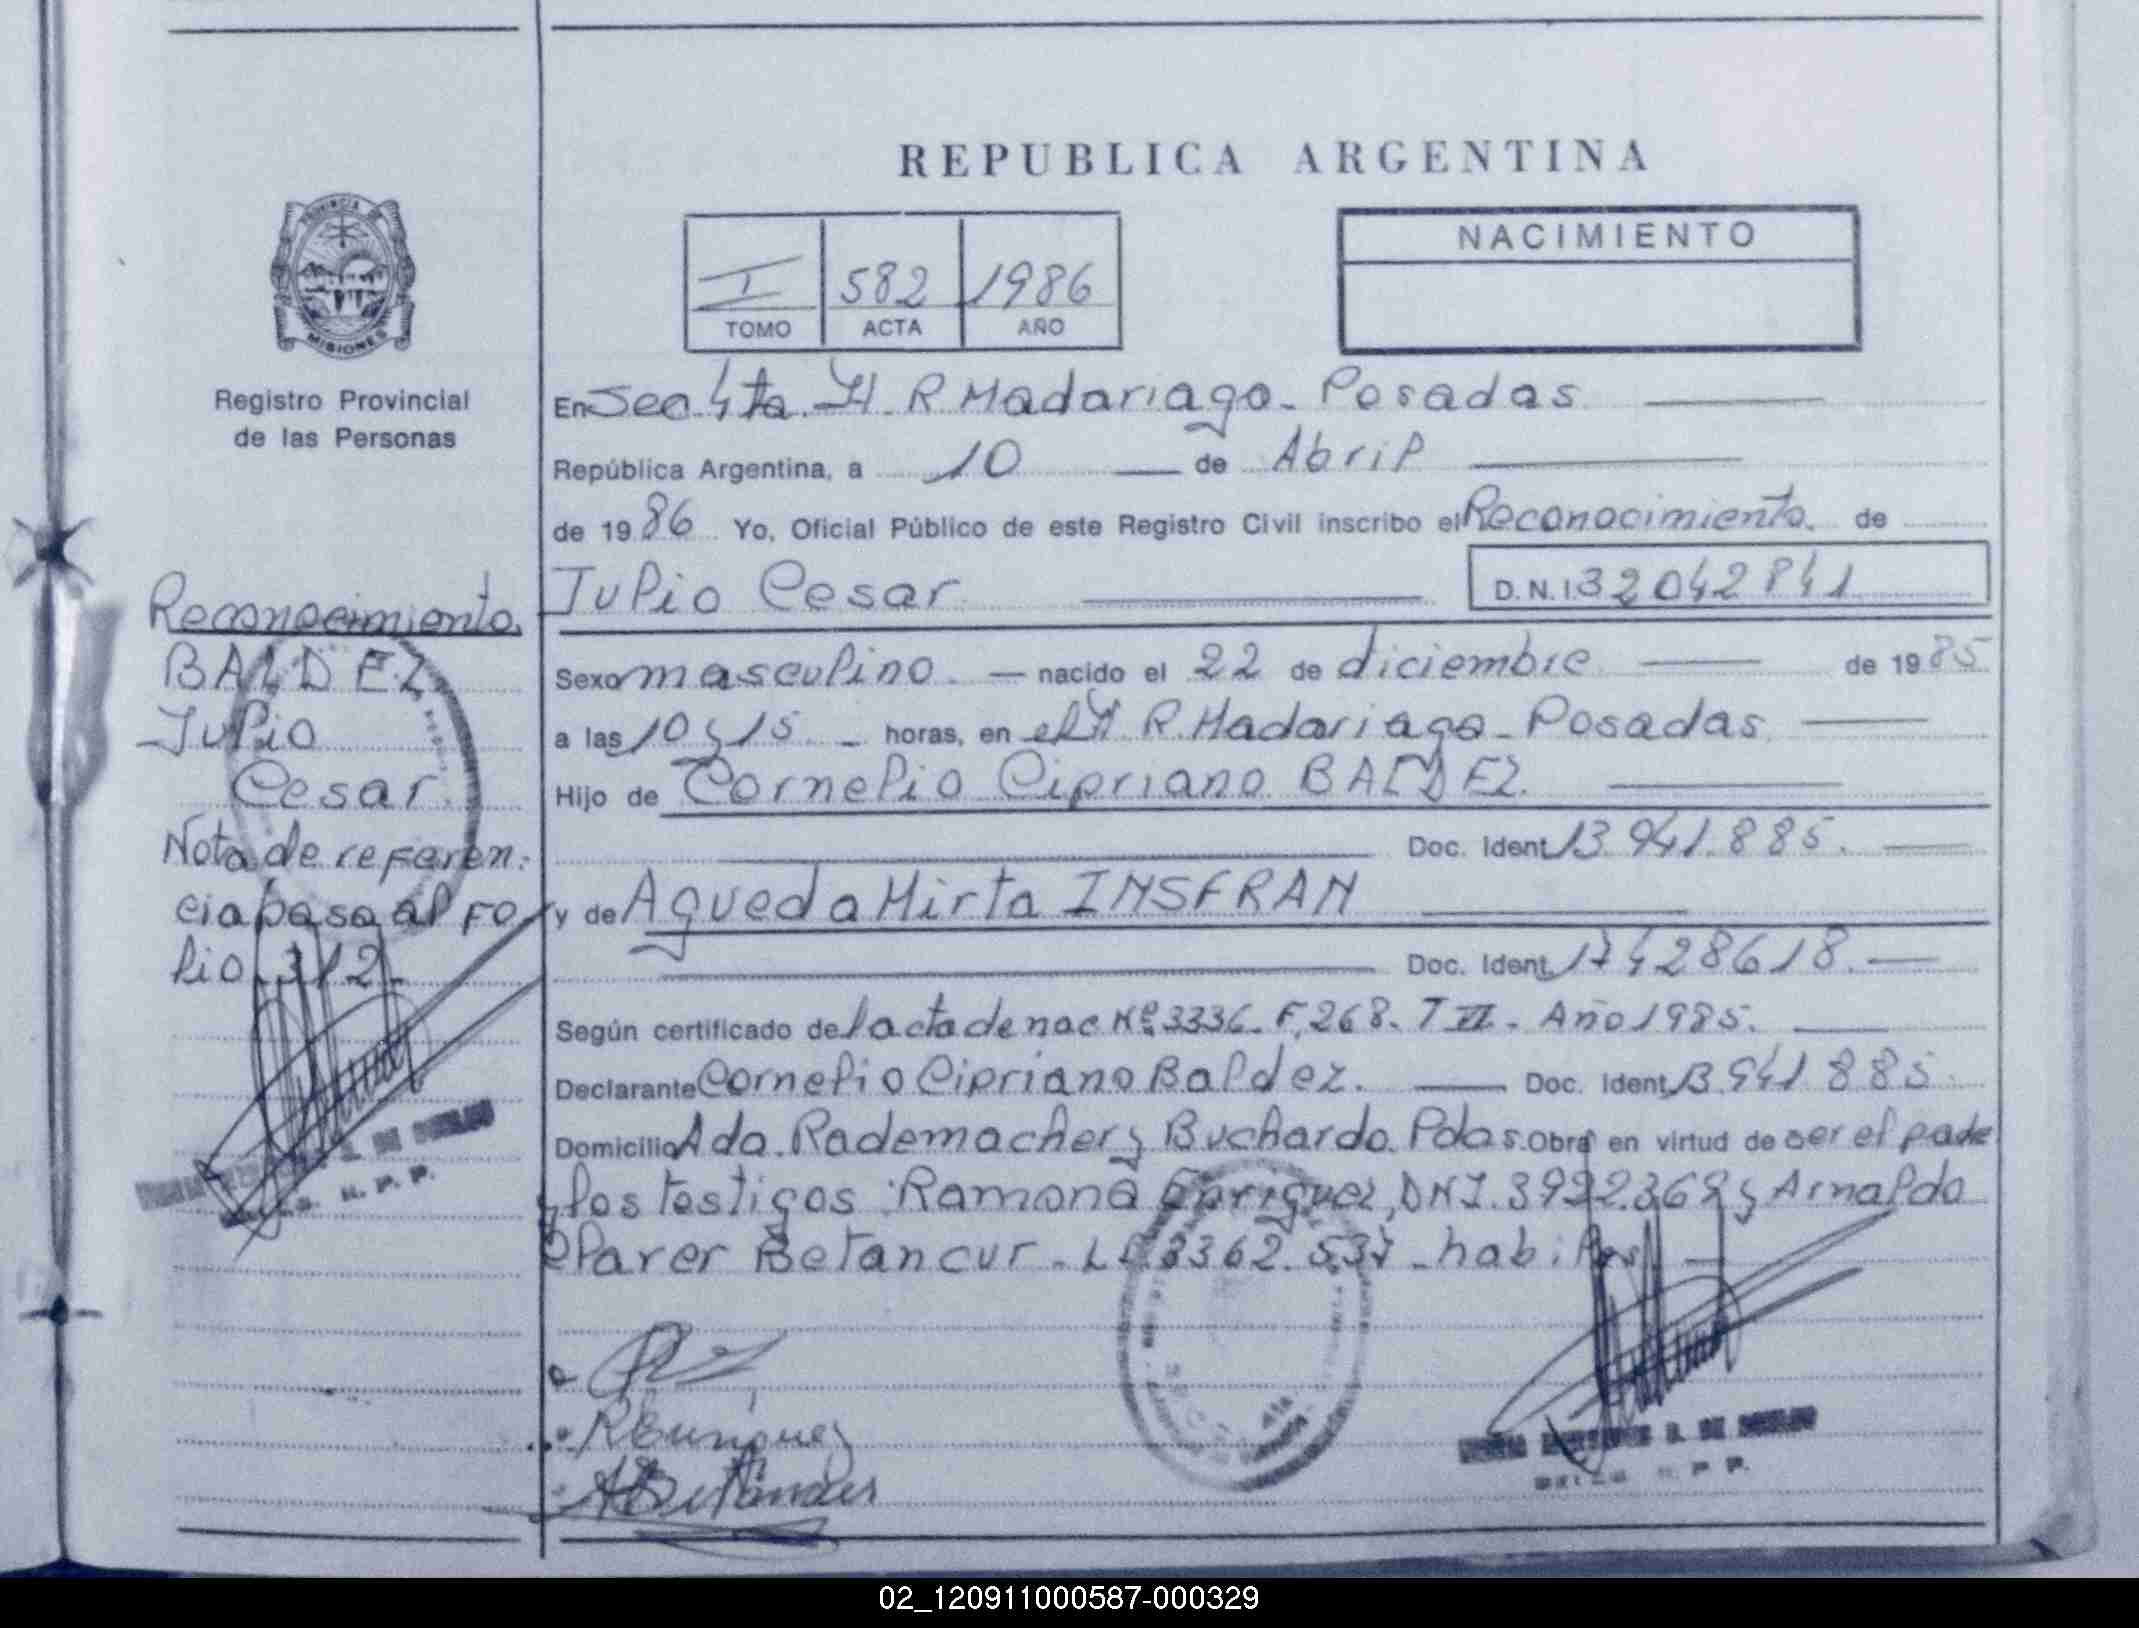 REPUBLICA ARGENTINA
PROVINCIA DE
MISIONES
Registro Provincial
de las Personas
I 582 1986
TOMO ACTA AÑO
NACIMIENTO
En Sec. 4ta. H. R Madariaga - Posadas
República Argentina, a 10 de Abril
de 1986 Yo, Oficial Público de este Registro Civil inscribo el Reconocimiento de
Julio Cesar D.N.I. 32042841
Sexo masculino. nacido el 22 de diciembre de 1985
a las 10 y 15 horas, en el H R. Madariaga - Posadas
Hijo de Cornelio Cipriano BALDEZ.
Doc. Ident. 13.941.885.
y de Agueda Mirta INSFRAN
Doc. Ident. 17428618.
Según certificado de l acta de nac Nº 3336. F. 268. T Año 1985.
Declarante Cornelio Cipriano Baldez. Doc. Ident. 13.941.885.
Domicilio Ada. Rademacher y Buchardo. Pdas. Obra en virtud de ser el padre
y los testigos: Ramona Enriquez, DNI. 3922.368 y Arnaldo
Clarer Betancur - L E 3362.537 - habiles
Reconocimiento.
BALDEZ
Julio
Cesar.
Nota de referen:
cia pasa al Fo
lio 312.
REnriquez
ABetancur
02_120911000587-000329